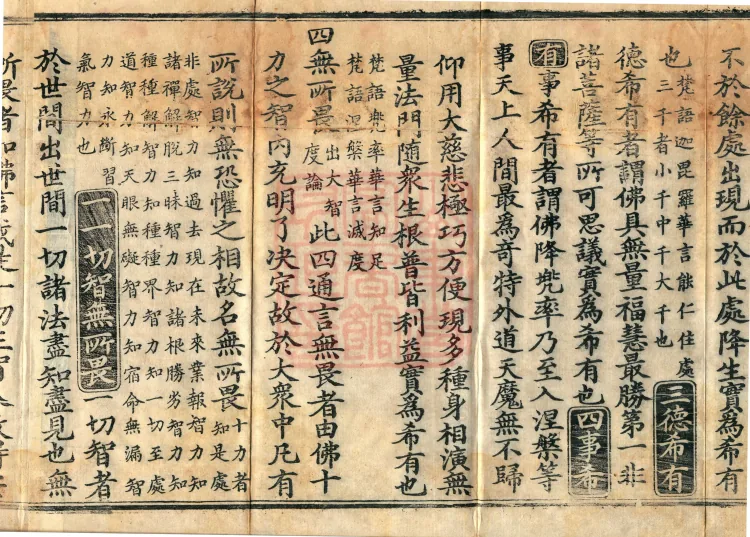 不於餘處出現而於此處降生實爲希有
也梵語迦毘羅華言能仁住處
三千者小千中千大千也
三德希有
德希有者謂佛具無量福慧最勝第一非
諸菩薩等所可思議實爲希有也四事希
有事希有者謂佛降兠率乃至入涅槃等
事天上人間最爲奇特外道天魔無不歸
仰用大慈悲極巧方便現多種身相演無
量法門隨衆生根普皆利益實爲希有也
梵語兠率華言知足
梵語涅槃華言滅度
四無所畏出大智度論此四通言無畏者由佛十
力之智内充明了決定故於大衆中凡有
所說則無恐懼之相故名無所畏十力者知是處
非處智力知過去現在未來業報智力知
諸禪解脫三昧智力知諸根勝劣智力知
種種解智力知種種界智力知一切至處
道智力知天眼無礙智力知宿命無漏智
力知永斷習
氣智力也
一一切智無所畏一切智者
於世間出世間一切諸法盡知盡見也無
所畏者如佛言